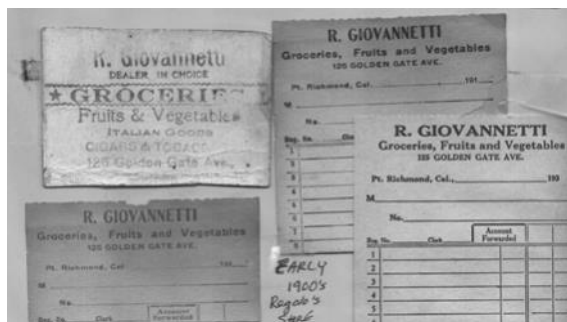 R. Giovannetti
DEALER IN CHOICE
★ GROCERIES
Fruits & Vegetables
ITALIAN GOODS
CIGARS & TOBACCO
120 Golden Gate Ave.,
R. GIOVANNETTI
Groceries, Fruits and Vegetables
125 GOLDEN GATE AVE.
Pt. Richmond, Cal. 191
M
No.
Reg. No. Clerk
1
2
3
4
5
6
7
8
R. GIOVANNETTI
Groceries, Fruits and Vegetables
125 GOLDEN GATE AVE.
Pt. Richmond, Cal., 193
M
No.
Reg. No. Clerk Account Forwarded
1
2
3
4
5
R. GIOVANNETTI
Groceries, Fruits and Vegetables
125 GOLDEN GATE AVE.
Pt. Richmond, Cal. 191
M
No.
Reg. No. Clerk Account Forwarded
EARLY
1900's